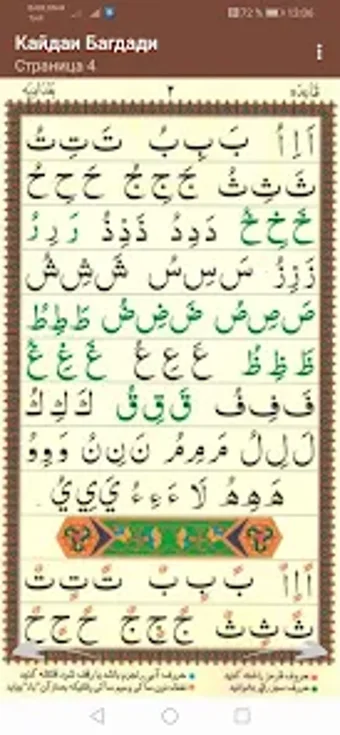 72 %
13:06
Кайдаи Багдади
Страница 4
قاعده ٢ بغدادیه
اَ اِ اُ بَ بِ بُ تَ تِ تُ
ثَ ثِ ثُ جَ جِ جُ حَ حِ حُ
خَ خِ خُ دَ دِ دُ ذَ ذِ ذُ رَ رِ رُ
زَ زِ زُ سَ سِ سُ شَ شِ شُ
صَ صِ صُ ضَ ضِ ضُ طَ طِ طُ
ظَ ظِ ظُ عَ عِ عُ غَ غِ غُ
فَ فِ فُ قَ قِ قُ كَ كِ كُ
لَ لِ لُ مَ مِ مُ نَ نِ نُ وَ وِ وُ
هَ هِ هُ لَا ءَ ءِ ءُ يَ يِ يُ
اً اٍ اٌ بً بٍ بٌ تً تٍ تٌ
ثً ثٍ ثٌ جً جٍ جٌ حً حٍ حٌ